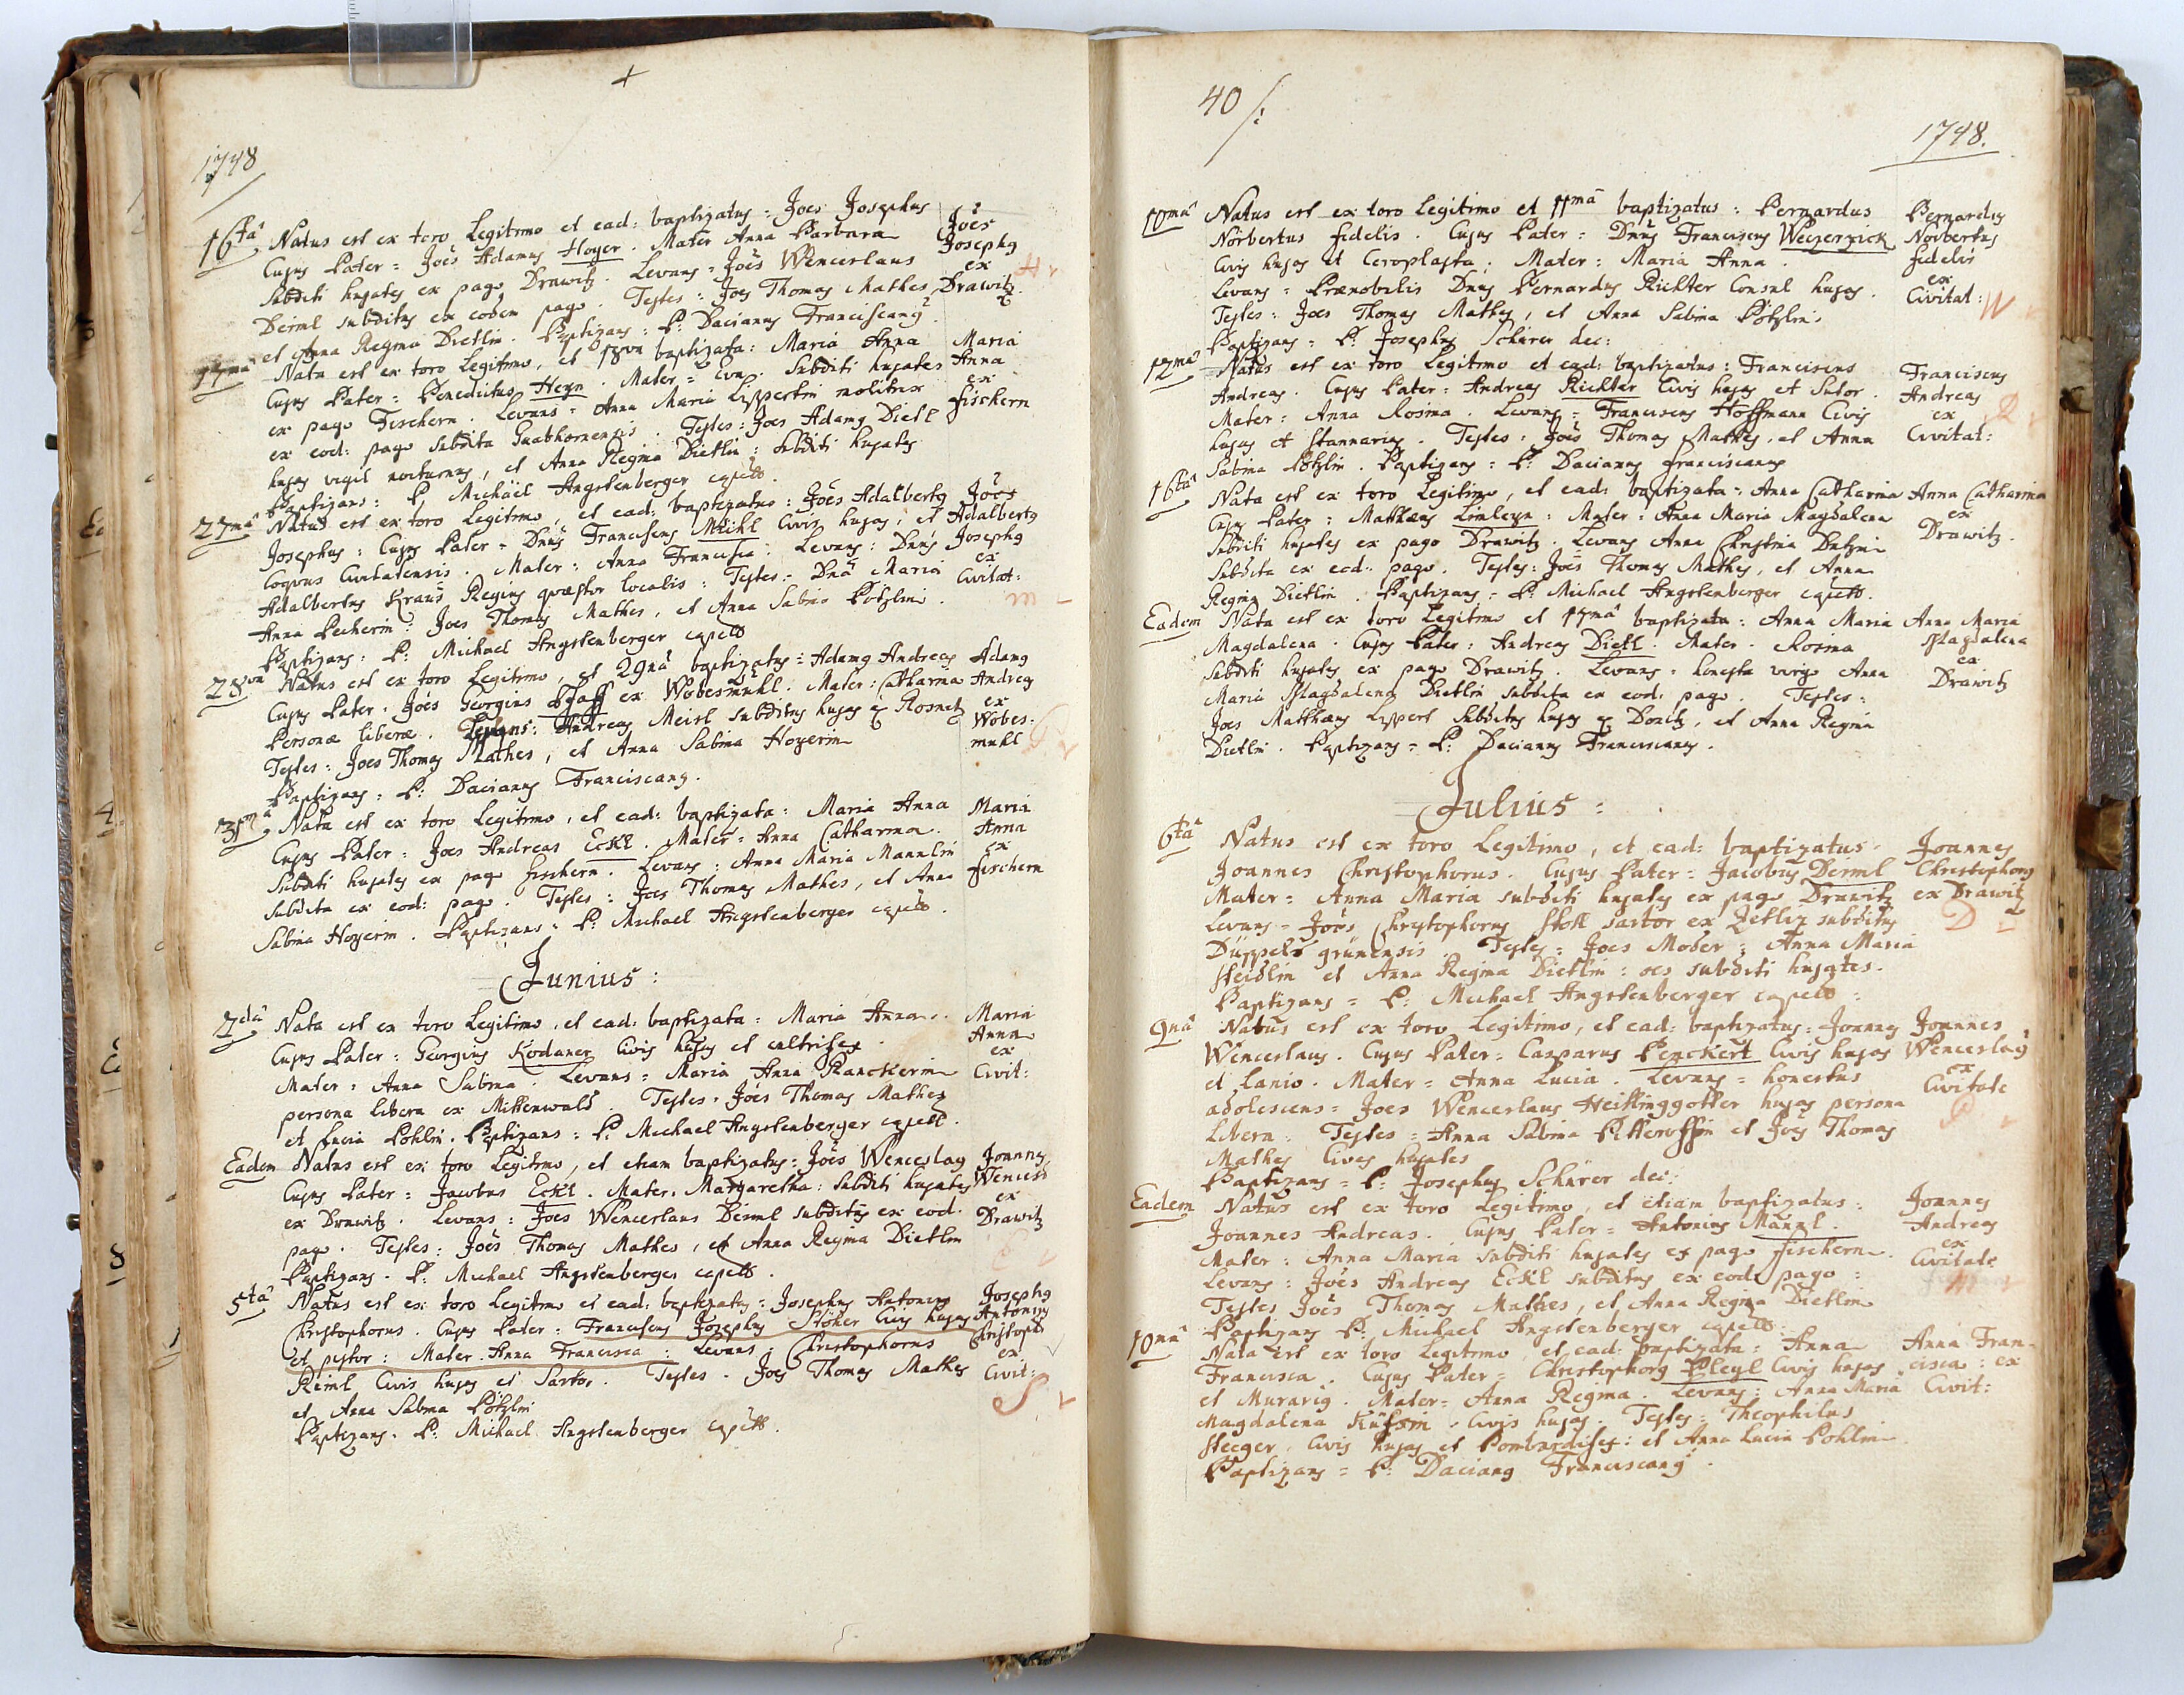 1748
16tâ Natus est ex toro Legitimo et ead: baptizatus = Joes Josephus Joes
Cujus Pater = Joës Adamus Hoyer. Mater Anna Barbara Josephg
Subditi hujates ex pago Drawitz. Levans = Joës Wenceslaus ex
Deiml subditus ex eodem pago. Testes: Joes Thomas Mathes Drawitz.
et Anna Regina Dietlin. Baptizans: P: Dacianus Franciscang
17mâ Nata est ex toro Legitimo, et 18va baptizata: Maria Anna Maria
Cujus Pater = Benedictus Heyn. Mater = Eva. Subditi hujates Anna
ex pago Fischern. Levans = Anna Maria Lippertin molitrix ex
ex eod: pago subdita. Testes: Joes Adamg Dietl fischern
hujas vigil nocturnus, et Anna Regina Dietlin: subditi hujates
Baptizans: P. Michäel Angstenberger capell.
27mâ Natus est ex toro Legitimo, et ead: baptizatus: Joës Adalbertg Joës
Josephus: Cujus Pater = Dnus Franciscus Meikl Civis hujas, et Adalbertg
Coquus Civitatensis. Mater: Anna Francisca: Levans: Dnus Josephg
Adalbertus Kraus Regius quæstor localis: Testes = Dna Maria ex
Anna Pecherin: Joes Thomas Mathes, et Anna Sabina Pötzlin. Civitat:
Baptizans: P: Michael Angstenberger capell m
28va Natus est ex toro Legitimo, et 29nâ baptizatus: Adamg Andreas Adamg
Cujus Pater: Joës Georgius Pfaff ex Wobesmühl. Mater: Catharina Andreas
Personæ liberæ. Levans: Andreas Meisl subditus hujas ex Rosnitz ex
Testes: Joes Thomas Mathes, et Anna Sabina Hoyerin Wobes-
Baptizans: P: Dacianus Franciscang. muhl
31mâ Nata est ex toro Legitimo, et ead: baptizata: Maria Anna Maria
Cujus Pater: Joes Andreas Eckl. Mater = Anna Catharina. Anna
Subditi hujates ex pago fischern. Levans: Anna Maria Mannlin ex
subdita ex eod: pago. Testes: Joes Thomas Mathes, et Anna fischern
Sabina Hoyerin. Baptizans: P: Michael Angstenberger capell.
Junius:
2dâ Nata est ex toro Legitimo, et ead: baptizata: Maria Anna. Maria
Cujus Pater: Georgius Kodauer Civis hujas et cultrifex. Anna
Mater: Anna Sabina. Levans = Maria Anna Planckerin ex
persona libera ex Mittenwald. Testes: Joës Thomas Mathes Civit:
et Lucia Pohlin. Baptizans: P. Michael Angstenberger capell.
Eadem Natus est ex toro Legitimo, et etiam baptizatus: Joës Wenceslag Joannes
Cujus Pater: Jacobus Eckl. Mater: Margaretha: subditi hujates Wencesl
ex Drawitz. Levans: Joes Wenceslaus Deiml subditus ex eod. ex
pago. Testes: Joës Thomas Mathes, et Anna Regina Dietlin Drawitz
Baptizans. P: Michael Angstenberger capell.
5tâ Natus est ex toro Legitimo et ead: baptizatus: Josephus Antonius Josephg
Christophorus. Cujus Pater: Franciscus Josephus Stöher Civis hujas Antonius
et pistor: Mater Anna Francisca: Levans: Christophorus Christoph:
Reiml Civis hujas et Sartor. Testes. Joes Thomas Mathes ex
et Anna Sabina Pötzlin Civit:
Baptizans. P: Michael Angstenberger capell. S
40
1748.
10mâ Natus est ex toro Legitimo et 11mâ baptizatus: Bernardus Bernardus
Nörbertus fidelis. Cujus Pater = Dnus Franciscus Weczernick Norbertus
Civis hujas et Ceroplasta. Mater: Maria Anna. fidelis
Levans = Prænobilis Dnus Bernardus Richter Consul hujas. ex
Testes: Joes Thomas Mathes, et Anna Sabina Pötzlin. Civitat: W
Baptizans: P: Josephus Schürer dec:
12mâ Natus est ex toro Legitimo et ead: baptizatus: Franciscus Franciscus
Andreas. Cujus Pater: Andreas Richter Civis hujas et Sutor. Andreas
Mater: Anna Rosina. Levans = Franciscus Hoffmann Civis ex
hujas et Stannarius. Testes: Joës Thomas Mathes, et Anna Civitat:
Sabina Pötzlin. Baptizans = P: Dacianus franciscanus
16tâ Nata est ex toro Legitimo, et ead: baptizata: Anna Catharina Anna Catharina
Cujus Pater: Mathæus Limleyn: Mater: Anna Maria Magdalena ex
Subditi hujates ex pago Drawitz. Levans Anna Christina Drawitz.
subdita ex eod: pago. Testes: Joës Thomas Mathes, et Anna
Regina Dietlin. Baptizans = P: Michael Angstenberger capell.
Eadem Nata est ex toro Legitimo et 17mâ baptizata: Anna Maria Anna Maria
Magdalena. Cujus Pater: Andreas Dietl. Mater. Rosina Magdalena
subditi hujates ex pago Drawitz. Levans = honesta virgo Anna ex
Maria Magdalena Dietlin subdita ex eod: pago. Testes: Drawitz
Joes Matthæus Lippert subditus hujas ex Donitz, et Anna Regina
Dietlin. Baptizans = P: Dacianus Franciscanus.
Julius:
6tâ Natus est ex toro Legitimo, et ead: baptizatus. Joannes
Joannes Christophorus. Cujus Pater = Jacobus Deiml Christophorg
Mater = Anna Maria subditi hujates ex pago Drawitz ex Drawitz
Levans = Joës Christophorus Stoll sartor ex Zetliz subditus D
Düppelsgrünensis. Testes = Joes Moder: Anna Maria
Steidlin et Anna Regina Dietlin: oes subditi hujates.
Baptizans = P: Michael Angstenberger capell:
9nâ Natus est ex toro Legitimo, et ead: baptizatus: Joannes Joannes
Wenceslaus. Cujus Pater = Casparus Penckert Civis hujas Wenceslag
et Lanio. Mater = Anna Lucia. Levans = honestus ex
adolescens = Joes Wenceslaus Heitlinggotter hujas persona Civitate
Libera. Testes = Anna Sabina et Joes Thomas P
Mathes Cives hujates
Baptizans = P: Josephus Schürer dec:
Eadem Natus est ex toro Legitimo, et etiam baptizatus: Joannes
Joannes Andreas. Cujus Pater = Antonius Mannl. Andreas
Mater: Anna Maria subditi hujates ex pago fischern. ex
Levans: Joës Andreas Eckl subditus ex eod: pago: Civitate
Testes Joës Thomas Mathes, et Anna Regina Dietlin
Baptizans P: Michael Angstenberger capell.
10mâ Nata est ex toro Legitimo, et ead: baptizata: Anna Anna Fran-
Francisca. Cujus Pater = Christophorg Pleyl Civis hujas cisca: ex
et Murarig. Mater: Anna Regina. Levans: Anna Maria Civit:
Magdalena. Civis hujas. Testes: Theophilus
Steeger Civis hujas et Bombardifex: et Anna Lucia Pohlin
Baptizans = P: Daciang Franciscang.